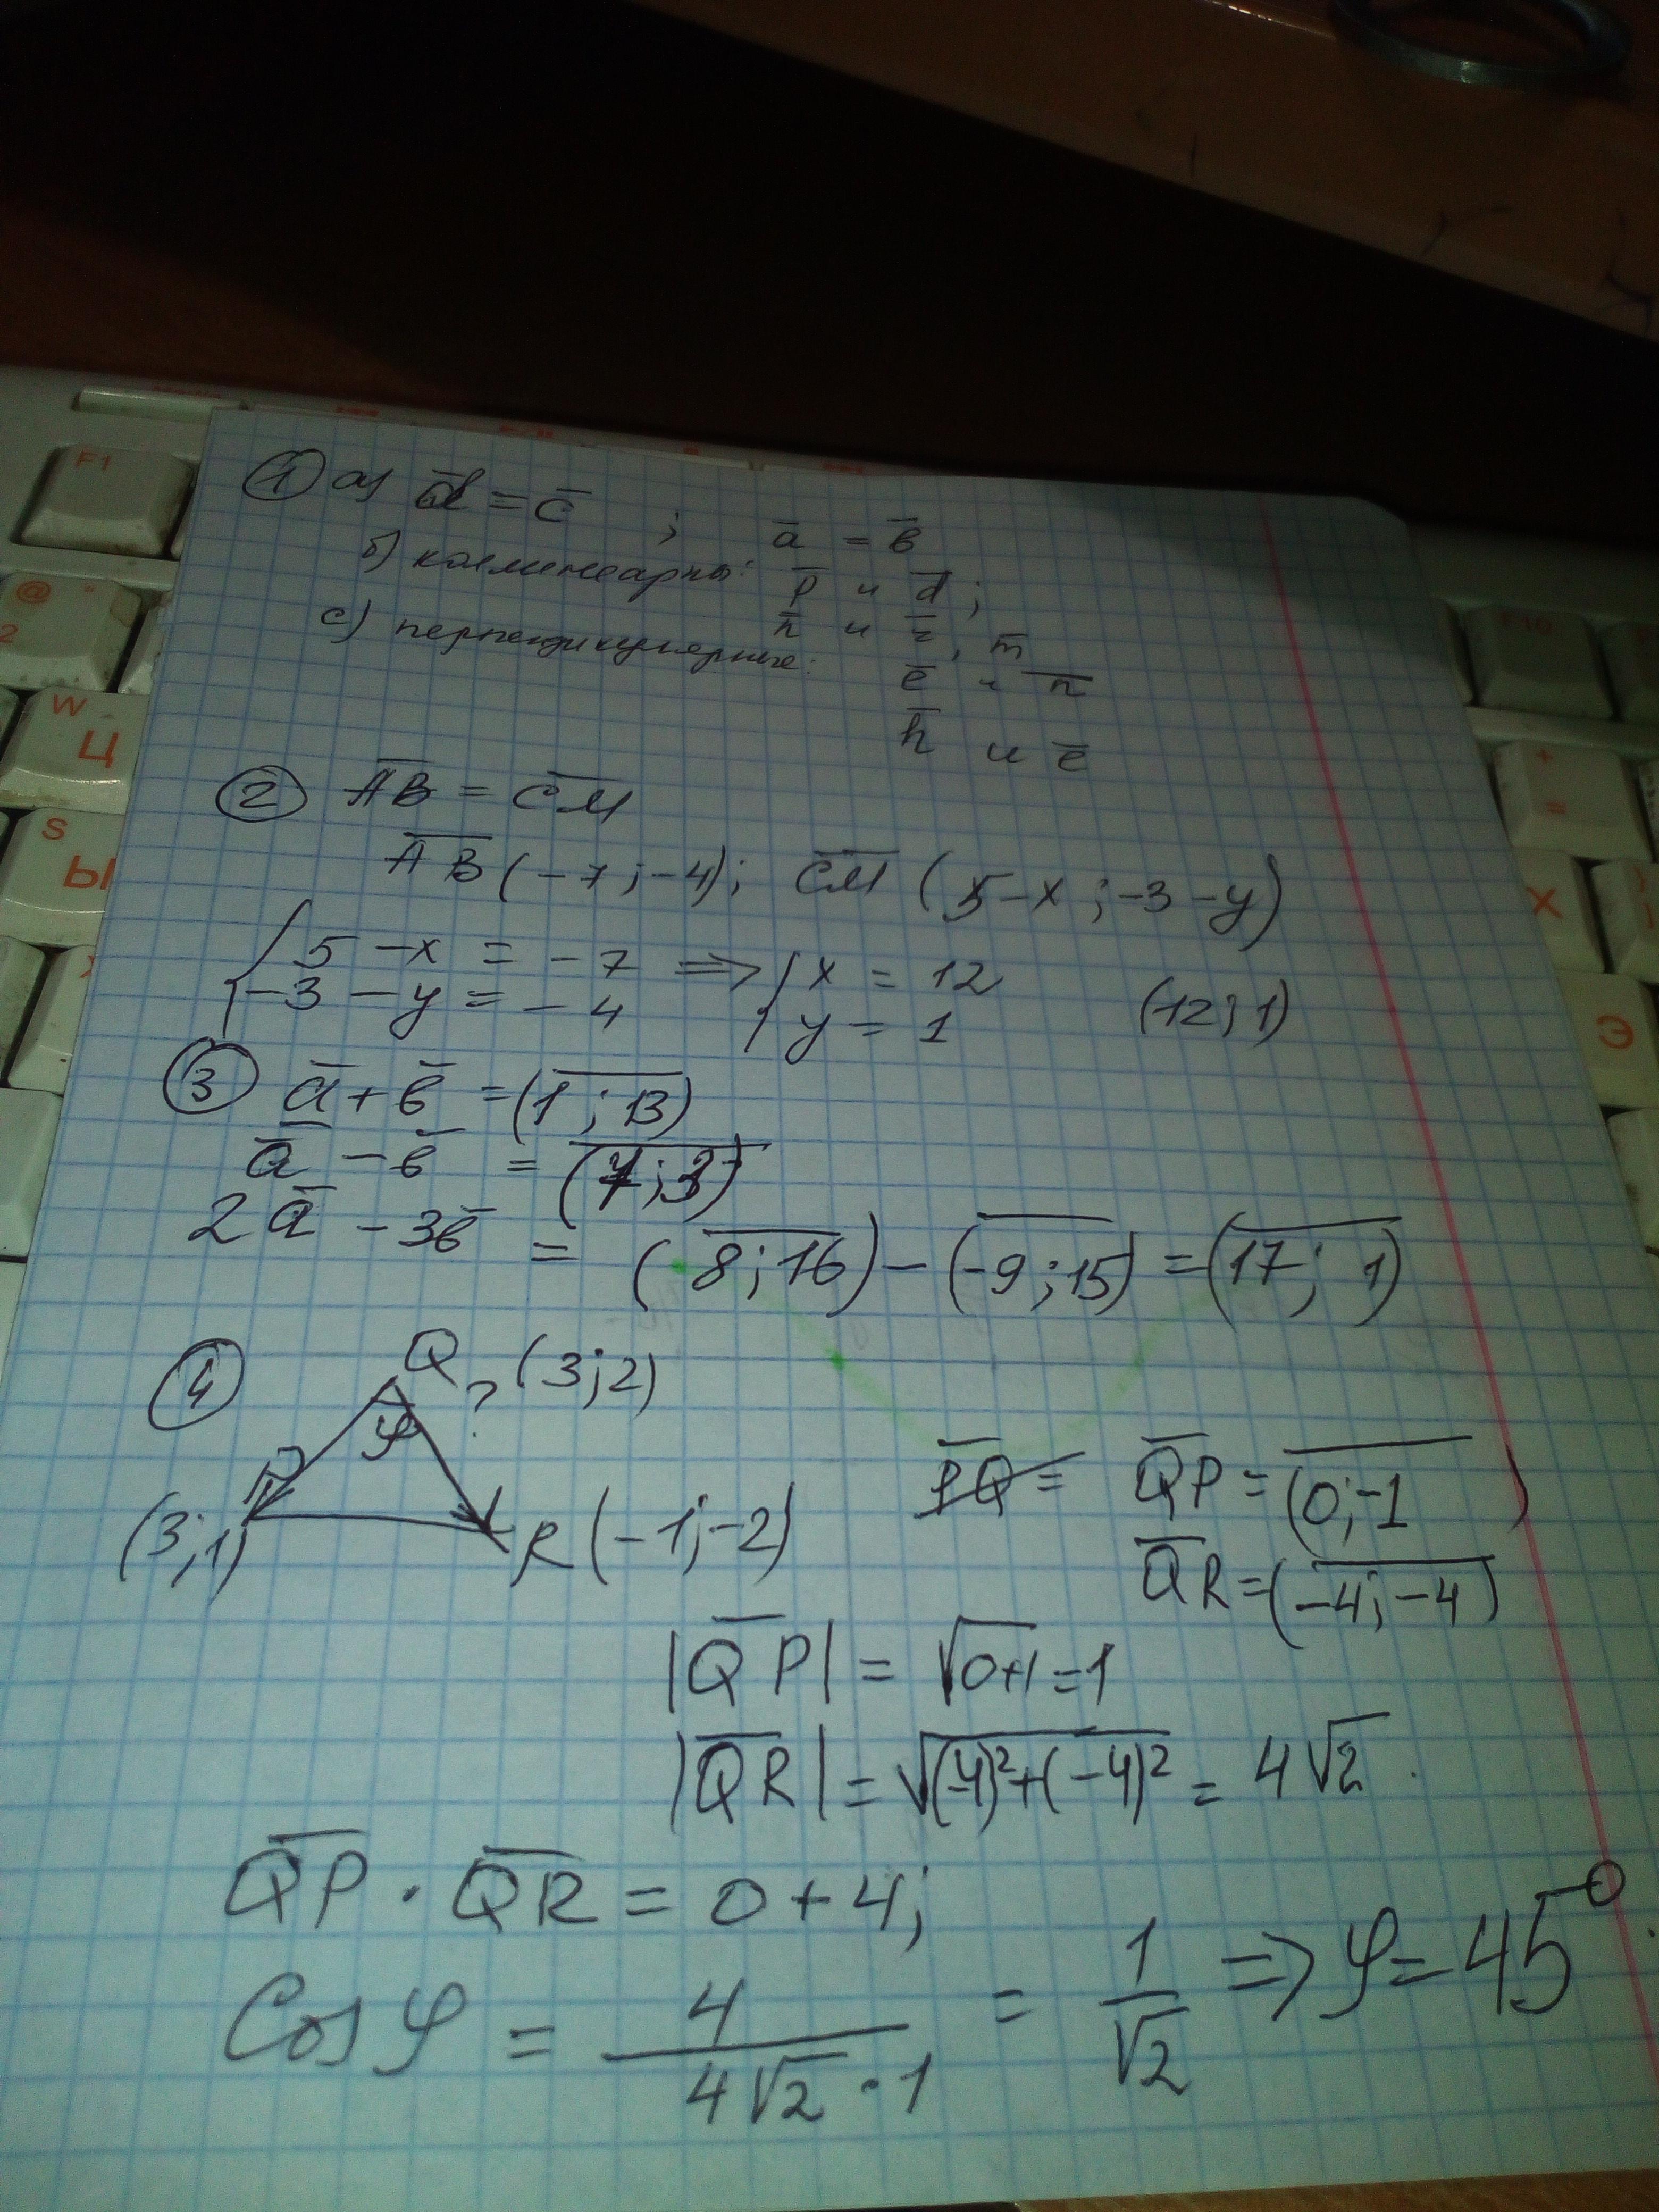 ① а) d̅ = c̅ ; a̅ = в̅
б) коллинеарны: p̅ и d̅;
n̅ и r̅, m̅
с) перпендикулярные:
e̅ и n̅
h̅ и e̅
② AB = CM
AB (-7; -4); CM (5-x; -3-y)
{ 5 - x = -7 => { x = 12
-3 - y = -4 y = 1 (12; 1)
③ a̅ + в̅ = (1; 13)
a̅ - в̅ = (7; 3)
2a̅ - 3в̅ = (8; 16) - (-9; 15) = (17; 1)
④ Q ? (3; 2)
φ
P
(3; 1)
R (-1; -2)
PQ = QP = (0; -1)
QR = (-4; -4)
|QP| = √0+1 = 1
|QR| = √(-4)²+(-4)² = 4√2.
QP · QR = 0 + 4;
Cos φ = 4 / 4√2 · 1 = 1 / √2 => φ = 45°
F1
@
2
W
Ц
S
Ы
F10
+
=
Х
Э